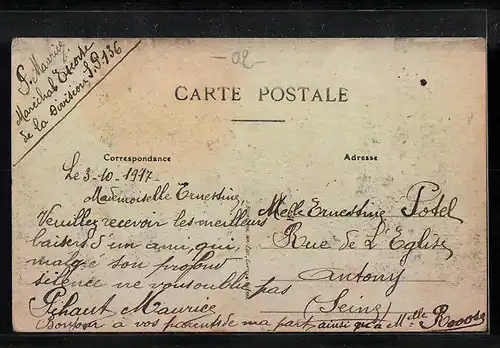 02
P. Mauric
Maréchal Escorte
de la Division S.P. 136
CARTE POSTALE
Correspondance
Adresse
Le 3-10-1917
Mademoiselle Ernestine,
Veuillez recevoir les meilleurs
baisers d'un ami, qui,
malgré son profond
silence ne vous oublie pas
Péhaut Maurice
Melle Ernestine Potel
Rue de L'Eglise
Antony
(Seine)
Bonjour a vos parents de ma part, ainsi qu'a Melle